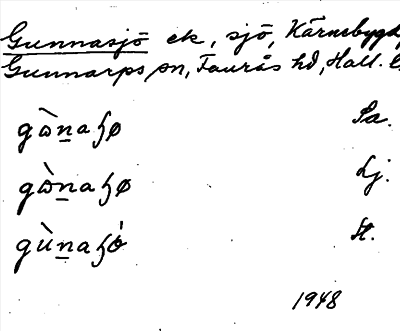 Gunnasjö ek, sjö, Kärnebygd,
Gunnarps sn, Faurås hd, Hall. l.
gɷ̀n̲aɧø Sa.
gɷ̀n̲aɧø Lj.
gùn̲aɧǿ St.
1948